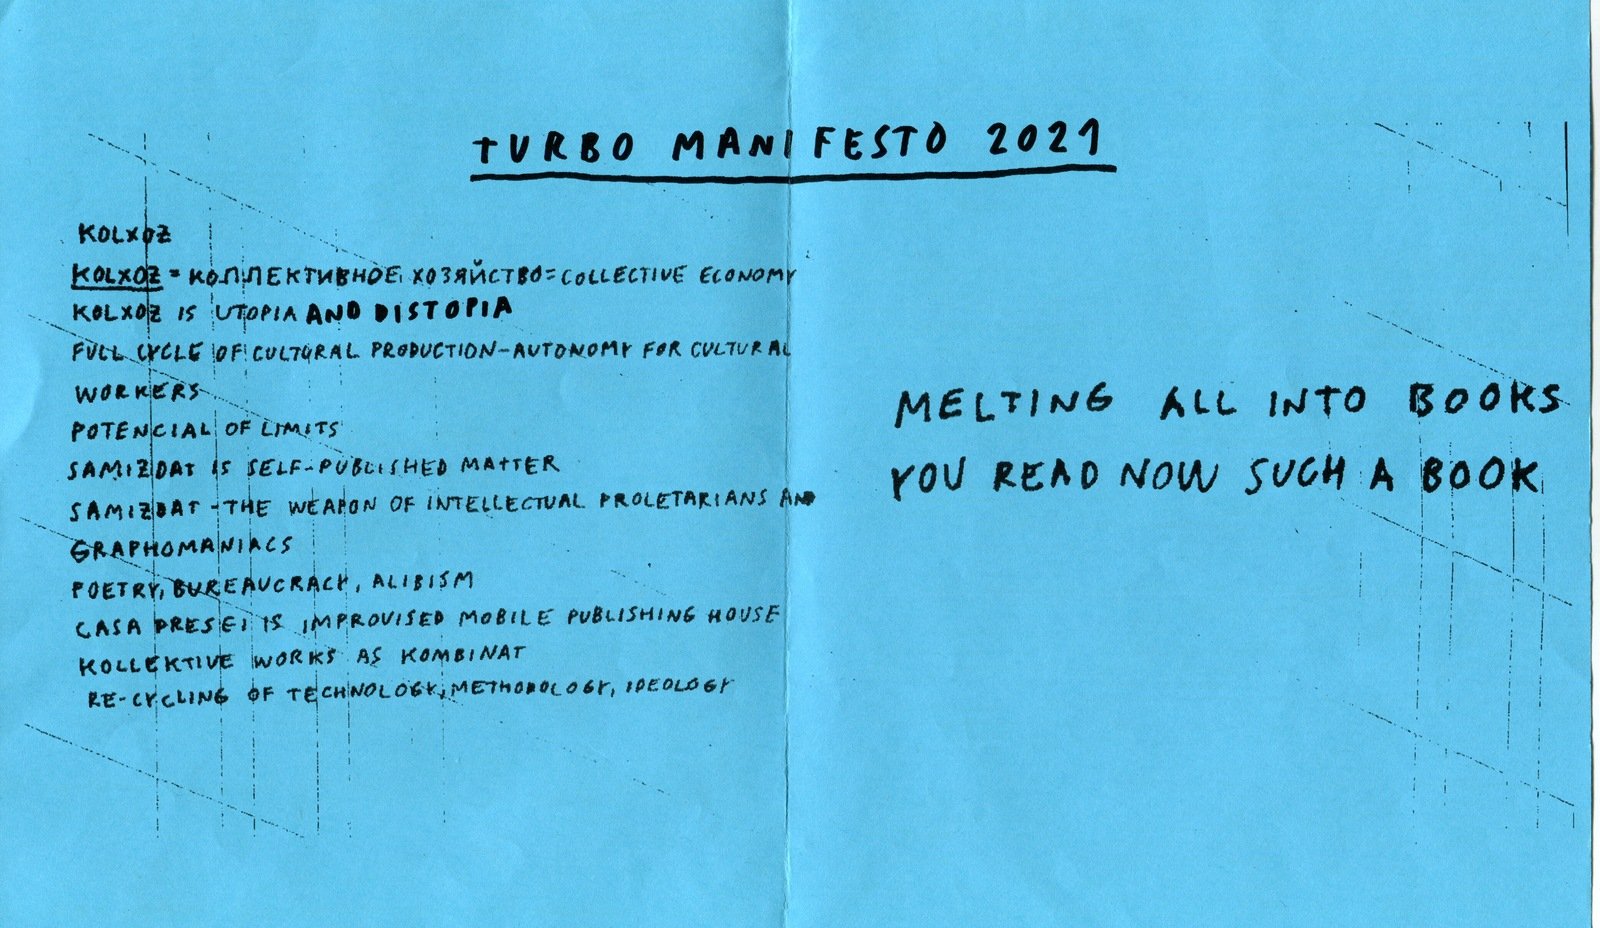 TURBO MANIFESTO 2021
KOLXOZ
KOLXOZ = КОЛЛЕКТИВНОЕ ХОЗЯЙСТВО = COLLECTIVE ECONOMY
KOLXOZ IS UTOPIA AND DISTOPIA
FULL CYCLE OF CULTURAL PRODUCTION - AUTONOMY FOR CULTURAL
WORKERS
POTENCIAL OF LIMITS
SAMIZDAT IS SELF-PUBLISHED MATTER
SAMIZDAT - THE WEAPON OF INTELLECTUAL PROLETARIANS AND
GRAPHOMANIACS
POETRY, BUREAUCRACY, ALIBISM
CASA PRESEI IS IMPROVISED MOBILE PUBLISHING HOUSE
KOLLEKTIVE WORKS AS KOMBINAT
RE-CYCLING OF TECHNOLOGY, METHODOLOGY, IDEOLOGY
MELTING ALL INTO BOOKS
YOU READ NOW SUCH A BOOK